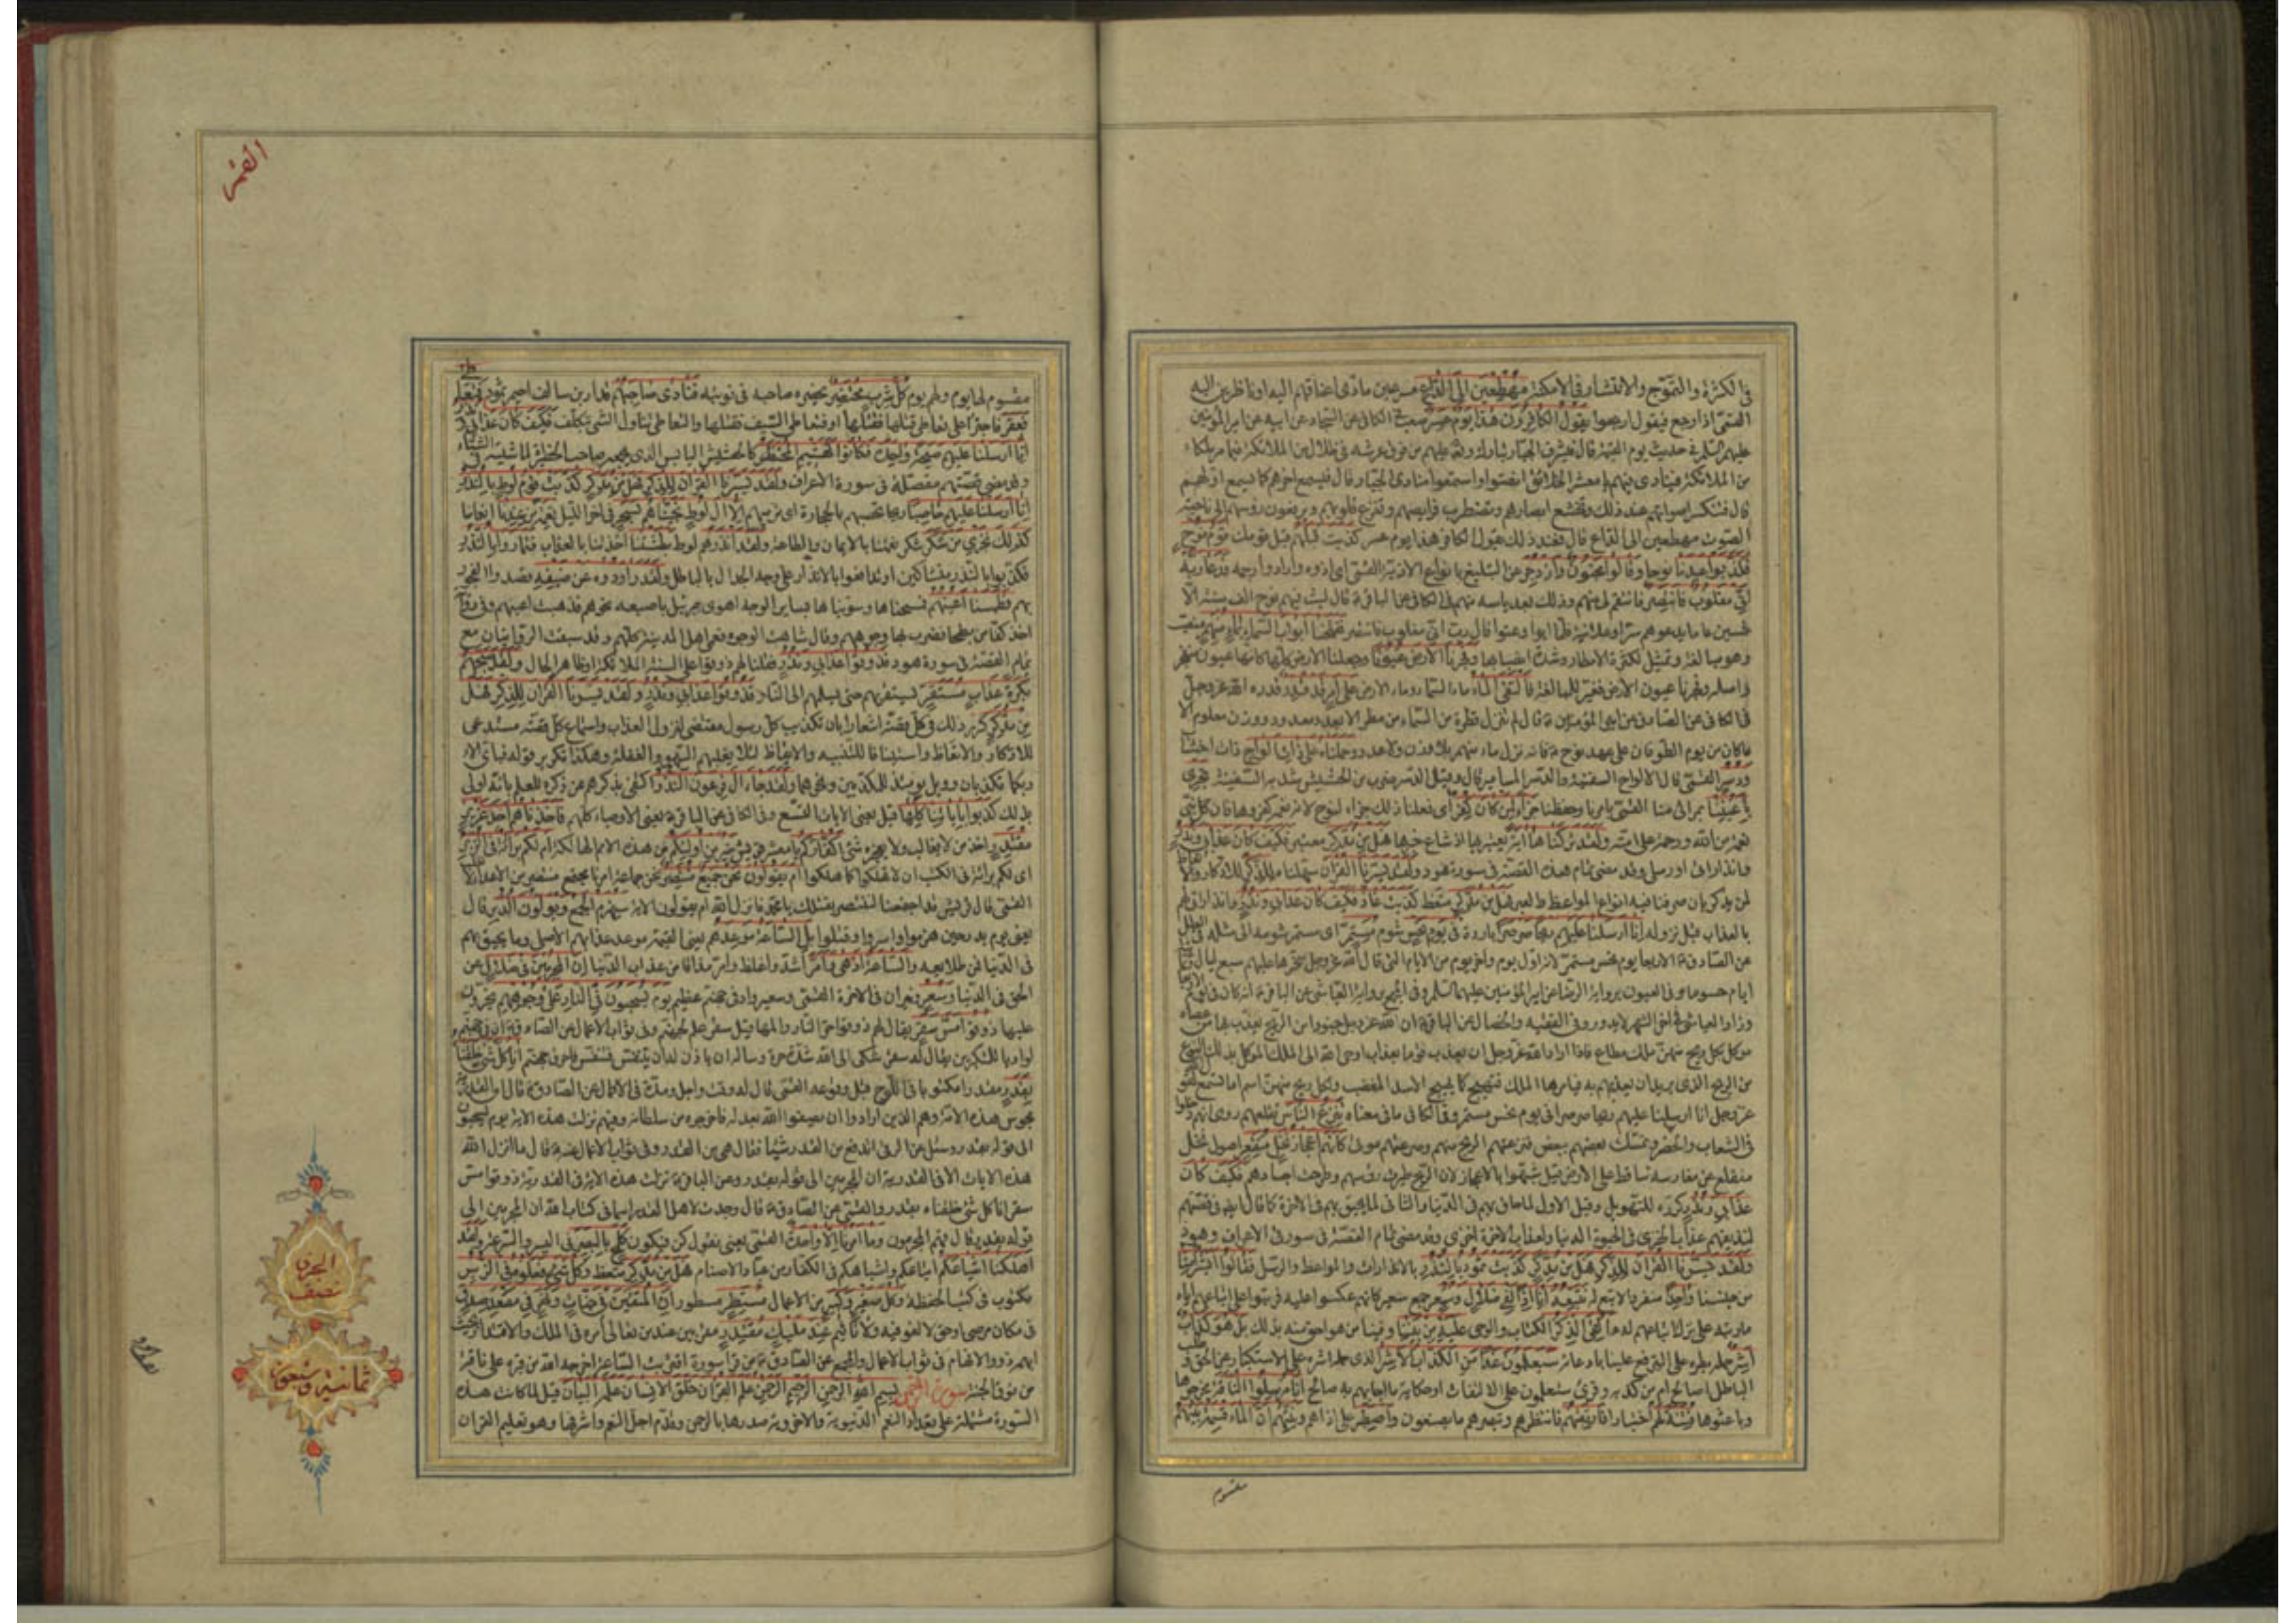 فى الكثرة والتموّج والانتشار فى الامكنة مهطعين الى الدّاع مسرعين مادّى اعناقهم اليه او ناظرين اليه
القمّى اذا رجع فيقول ارجعوا يقول الكافرون هذا يوم عسر صعب فى الكافى عن السجاد عن ابيه عن امير المؤمنين
عليهم السّلم فى حديث يوم القيمة قال فيشرف الجبّار تبارك وتعالى عليهم من فوق عرشه فى ظلال من الملائكة فيأمر ملكاً
من الملائكة فينادى فيهم يا معشر الخلائق انصتوا واستمعوا منادى الجبّار قال فيسمع اخرهم كما يسمع اوّلهم
قال فتنكسر اصواتهم عند ذلك وتخشع ابصارهم وتضطرب فرايصهم وتفزع قلوبهم ويرفعون رؤسهم الى ناحية
الصّوت مهطعين الى الدّاع قال فعند ذلك يقول الكافر هذا يوم عسر كذّبت قبلهم قبل قومك قوم نوح
فكذّبوا عبدنا نوحا وقالوا مجنون وازدجر عن التبليغ بانواع الاذيّة
انّى مغلوب فانتصر فانتقم لى منهم وذلك بعد يأسه منهم فى الكافى عن الباقر ع قال لبث فيهم نوح الف سنة الّا
خمسين عاما يدعوهم سرّا وعلانية فلمّا ابوا وعتوا قال ربّ انّى مغلوب فانتصر ففتحنا ابواب السّماء بماء منهمر منصبّ
وهو مبالغة وتمثيل لكثرة الامطار وشدّة انصبابها وفجّرنا الارض عيونا وجعلنا الارض كلّها كانّها عيون منفجرة
واصله وفجّرنا عيون الارض فغيّر للمبالغة فالتقى الماء ماء السّماء وماء الارض على امر قد قدر قدّره الله عزّ وجلّ
فى الكافى عن الصّادق عن امير المؤمنين ع قال لم تنزل قطرة من السّماء من مطر الّا بعدد معدود ووزن معلوم الّا
ما كان من يوم الطوفان على عهد نوح ع فانّه نزل ماء منهمر بلا وزن ولا عدد وحملناه على ذات الواح ذات اخشاب
ودسر القمّى قال الالواح السفينة والدّسر المسامير قال وقيل الدّسر ضرب من الحشيش شدّ به السّفينة تجرى
باعيننا بمرأى منّا القمّى بامرنا وحفظنا جزاء لمن كان كفر اى فعلنا ذلك جزاء لنوح لانّه نعمة كفروها فان كلّ نبىّ
نعمة من الله ورحمة على امّته ولقد تركناها آية يعتبر بها اذ شاع خبرها فهل من مدّكر معتبر فكيف كان عذابى ونذر
وانذاراتى او رسلى وقد مضى تمام هذه القصّة فى سورة هود ولقد يسّرنا القران سهّلناه للذّكر للادّكار والاتعاظ
لمن يذكر بان صرفنا فيه انواع المواعظ والعبر فهل من مدّكر متّعظ كذّبت عاد فكيف كان عذابى ونذر وانذاراتى لهم
بالعذاب قبل نزوله انّا ارسلنا عليهم ريحا صرصرا باردة فى يوم نحس شوم مستمرّ اى استمرّ شومه
عن الصّادق ع الاربعا يوم نحس مستمرّ لانّه اوّل يوم واخر يوم من الايام التى قال الله عزّ وجلّ سخّرها عليهم سبع ليال وثمانية
ايام حسوما وفى العيون برواية الرضا عن امير المؤمنين عليهما السّلم وفى المجمع برواية العياشى عن الباقر ع انّه كان فى يوم
وزاد العياشى فى اخر الشهر لا يدور وفى الفقيه والخصال عن الباقر ع ان لله عزّ وجلّ جنودا من الرّيح يعذّب بها من عصاه
موكل بكل ريح منهنّ ملك مطاع فاذا اراد الله عزّ وجلّ ان يعذّب قوما بعذاب اوحى الله الى الملك الموكل بذلك النوع
من الريح الذى يريد ان يعذّبهم به فيأمرها الملك فتهيج كما يهيج الاسد المغضب ولكل ريح منهنّ اسم اما تسمع لقول
عزّ وجل انا ارسلنا عليهم ريحا صرصرا فى يوم نحس مستمر وفى الكافى ما فى معناه تنزع النّاس تقلعهم روى انهم دخلوا
فى الشعاب والحفر وتمسّك بعضهم ببعض فنزعتهم الريح منها وصرعتهم موتى كانّهم اعجاز نخل منقعر اصول نخل
منقلع عن مغارسه ساقط على الارض قيل شبّهوا بالاعجاز لان الرّيح طيرت رؤسهم وطرحت اجسادهم فكيف كان
عذابى ونذر كرّره للتهويل وقيل الاول لما حاق بهم فى الدّنيا والثانى لما يحيق بهم فى الاخرة كما قال ايضا فى قصّتهم
لنذيقهم عذاب الخزى فى الحيوة الدنيا ولعذاب الاخرة اخزى وقد مضى تمام القصّة فى سورة الاعراف وهود
ولقد يسّرنا القران للذّكر فهل من مدّكر كذّبت ثمود بالنّذر بالانذارات والمواعظ والرّسل فقالوا ابشرا منّا
من جنسنا واحدا منفردا لا تبع له نتّبعه انّا اذا لفى ضلال وسعر جمع سعير كانّهم عكسوا عليه فرتّبوا على اتّباعهم ايّاه
ما رتّبه على ترك اتّباعهم له ءالقى الذّكر الكتاب والوحى عليه من بيننا وفينا من هو احق منه بذلك بل هو كذّاب
اشر حمله بطره على الترفع علينا بادعائه سيعلمون غدا من الكذّاب الاشر الذى حمله اشره على الاستكبار عن الحق وطلب
الباطل اصالح ام من كذبه وقرئ ستعلمون على الالتفات او حكاية ما اجابهم به صالح انّا مرسلوا النّاقة مخرجوها
وباعثوها فتنة لهم اختبارا فارتقبهم فانتظرهم وتبصر ما يصنعون واصطبر على اذاهم ونبّئهم ان الماء قسمة بينهم
مقسوم
القمر
مقسوم لها يوم ولهم يوم كلّ شرب محتضر يحضره صاحبه فى نوبته فنادوا صاحبهم قدار بن سالف احيمر ثمود فتعاطى
فعقر فاجترأ على تعاطى قتلها فقتلها او فتعاطى السّيف فقتلها والتعاطى تناول الشىء بتكلّف فكيف كان عذابى ونذر
انّا ارسلنا عليهم صيحة واحدة فكانوا كهشيم المحتظر كالحشيش اليابس الذى يجمعه صاحب الحظيرة لماشيته فى الشتاء
وقد مضى قصّتهم مفصّلة فى سورة الاعراف ولقد يسّرنا القران للذّكر فهل من مدّكر كذّبت قوم لوط بالنّذر
انّا ارسلنا عليهم حاصبا ريحا تحصبهم بالحجارة اى ترميهم الّا ال لوط نجّيناهم بسحر فى اخر الليل نعمة من عندنا انعاما
كذلك نجزى من شكر شكر نعمتنا بالايمان والطاعة ولقد انذرهم لوط بطشتنا اخذتنا بالعذاب فتماروا بالنّذر
فكذّبوا بالنّذر متشاكّين او تدافعوا بالانذار على وجه الجدال بالباطل ولقد راودوه عن ضيفه قصدوا الفجور
بهم فطمسنا اعينهم فمسحناها وسوّيناها بساير الوجه اهوى جبرئيل باصبعه نحوهم فذهبت اعينهم وفى رواية
اخذ كفّا من بطحا فضرب بها وجوههم وقال شاهت الوجوه فعمى اهل المدينة كلّهم وقد سبقت الرّوايتان مع
تمام القصّة فى سورة هود فذوقوا عذابى ونذر فقلنا لهم ذوقوا على السنة الملائكة او ظاهر الحال ولقد صبّحهم
بكرة عذاب مستقرّ يستقرّ بهم حتى يسلمهم الى النّار فذوقوا عذابى ونذر ولقد يسّرنا القران للذّكر فهل
من مدّكر كرر ذلك فى كلّ قصّة اشعارا بان تكذيب كلّ رسول مقتضى لنزول العذاب واستماع كلّ قصّة مستدعى
للادّكار والاتعاظ واستينافا للتنبيه والايقاظ لئلا يغلبهم السّهو والغفلة وهكذا تكرير قوله فباىّ الاء
ربكما تكذبان وويل يومئذ للمكذّبين ونحوهما ولقد جاء ال فرعون النّذر اكتفى بذكرهم عن ذكره للعلم بانّه اولى
بذلك كذّبوا باياتنا كلّها قيل يعنى الايات التّسع وفى الكافى عن الباقر ع يعنى الاوصياء كلّهم فاخذناهم اخذ عزيز
مقتدر اخذ من لا يغالب ولا يعجزه شىء اكفّاركم يا معشر قريش خير من اولئكم من هذه الامم الهالكة ام لكم براءة فى الزّبر
اى لكم براءة فى الكتب ان لا تهلكوا كما هلكوا ام يقولون نحن جميع منتصر نحن جماعة امرنا مجتمع منتصر من الاعداء
القمّى قال قريش قد اجتمعنا لننتصر بقتلك يا محمد فانزل الله ام يقولون الاية سيهزم الجمع ويولّون الدّبر قال
يعنى يوم بدر حين هزموا واسروا وقتلوا بل السّاعة موعدهم يعنى القيمة موعد عذابهم الاصلى وما يحيق بهم
فى الدّنيا فمن طلايعه والسّاعة ادهى وامرّ اشدّ واغلظ وامرّ مذاقا من عذاب الدّنيا انّ المجرمين فى ضلال عن
الحق فى الدّنيا وسعر ونيران فى الاخرة القمّى وسعر واد فى جهنّم عظيم يوم يسحبون فى النّار على وجوههم يجرّون
عليها ذوقوا مسّ سقر يقال لهم ذوقوا حرّ النّار والمها قيل سقر علم لجهنّم وفى ثواب الاعمال عن الصّادق ع ان فى جهنّم
لواديا للمتكبّرين يقال له سقر شكى الى الله شدّة حرّه وساله ان يأذن له ان يتنفّس فتنفّس فاحرق جهنّم انّا كلّ شىء خلقناه
بقدر مقدرا مكتوبا فى اللّوح قبل وقوعه القمّى قال له وقت واجل ومدّة وفى الاكمال عن الصّادق ع قال ان القدريّة
مجوس هذه الامّة وهم الذين ارادوا ان يصفوا الله بعدله فاخرجوه من سلطانه وفيهم نزلت هذه الاية يوم يسحبون
الى قوله بقدر وسئل عن الرقى اتدفع من القدر شيئا فقال هى من القدر وفى ثواب الاعمال عنه ع قال ما انزل الله
هذه الايات الّا فى القدريّة ان المجرمين الى قوله بقدر وعن الباقر ع نزلت هذه الاية فى القدريّة ذوقوا مسّ
سقر انّا كل شىء خلقناه بقدر والقمّى عن الصّادق ع قال وجدت لاهل القدر اسما فى كتاب الله ان المجرمين الى
قوله بقدر قال فهم المجرمون وما امرنا الّا واحدة القمّى يعنى نقول كن فيكون كلمح بالبصر فى اليسر والسّرعة ولقد
اهلكنا اشياعكم اتباعكم واشباهكم فى الكفار من عبّاد الاصنام فهل من مدّكر متّعظ وكلّ شىء فعلوه فى الزّبر
مكتوب فى كتب الحفظة وكل صغير وكبير من الاعمال مستطر مسطور انّ المتّقين فى جنّات ونهر فى مقعد صدق
فى مكان مرضىّ او حق لا لغو فيه ولا تأثيم عند مليك مقتدر مقرّبين عند من تعالى امره فى الملك والاقتدار بحيث
ابهمه ذووا الافهام فى ثواب الاعمال والمجمع عن الصّادق ع من قرأ سورة اقتربت السّاعة اخرجه الله من قبره على ناقة
من نوق الجنّة سورة الرحمن بسم الله الرحمن الرحيم الرحمن علّم القران خلق الانسان علّمه البيان قيل لما كانت هذه
السّورة مشتملة على تعداد النّعم الدّنيويّة والاخرويّة صدرها بالرحمن وقدّم اجلّ النّعم واشرفها وهو تعليم القران
الحزب
نصف
ثمانية وتسعون